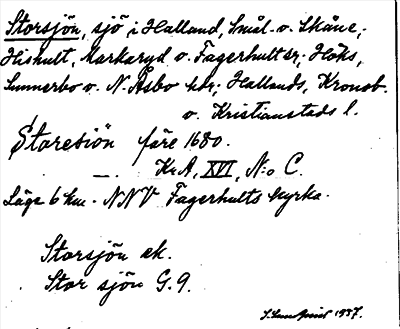 Storsjön, sjö i Halland, Smål. o. Skåne,
Hishult, Markaryd o. Fagerhult sr; Höks,
Sunnerbo o. N. Åsbo hdr; Hallands, Kronob.
o. Kristianstads l.
Storesiön före 1680.
— . KrA, XVI, N:o C.
Läge 6 km. NNV Fagerhults kyrka.
Storsjön ek.
Stor sjön G. 9.
1937.